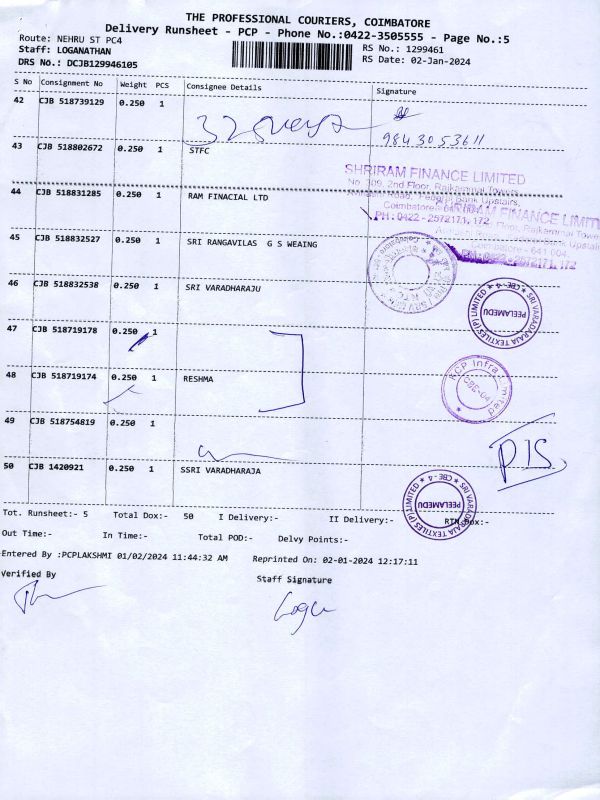 THE PROFESSIONAL COURIERS, COIMBATORE
Delivery Runsheet - PCP - Phone No.:0422-3505555 - Page No.:5
Route: NEHRU ST PC4
Staff: LOGANATHAN
RS No.: 1299461
DRS No.: DCJB129946105
RS Date: 02-Jan-2024
S No Consignment No Weight PCS Consignee Details Signature
42 CJB 518739129 0.250 1
9843053611
43 CJB 518802672 0.250 1 STFC
SHRIRAM FINANCE LIMITED
No. 309, 2nd Floor, Rajkammal Towers,
44 CJB 518831285 0.250 1 RAM FINACIAL LTD
Bank Upstairs,
Coimbatore
PH : 0422 - 2572171, 172
SHRIRAM FINANCE LIMIT
Floor, Rajkammal Tower
Bank Upstair
Coimbatore - 641 004.
2572171, 172
45 CJB 518832527 0.250 1 SRI RANGAVILAS G S WEAING
46 CJB 518832538 0.250 1 SRI VARADHARAJU
SRI VARADARAJA TEXTILES (P) LIMITED ★ CBE-4 ★
PEELAMEDU
47 CJB 518719178 0.250 1
48 CJB 518719174 0.250 1 RESHMA
KCP Infra Limited
CBE-04
49 CJB 518754819 0.250 1
50 CJB 1420921 0.250 1 SSRI VARADHARAJA
SRI VARADARAJA TEXTILES (P) LIMITED ★ CBE-4 ★
PEELAMEDU
Tot. Runsheet:- 5 Total Dox:- 50 I Delivery:- II Delivery:- RTN Dox:-
Out Time:- In Time:- Total POD:- Delvy Points:-
Entered By :PCPLAKSHMI 01/02/2024 11:44:32 AM Reprinted On: 02-01-2024 12:17:11
Verified By
Staff Signature